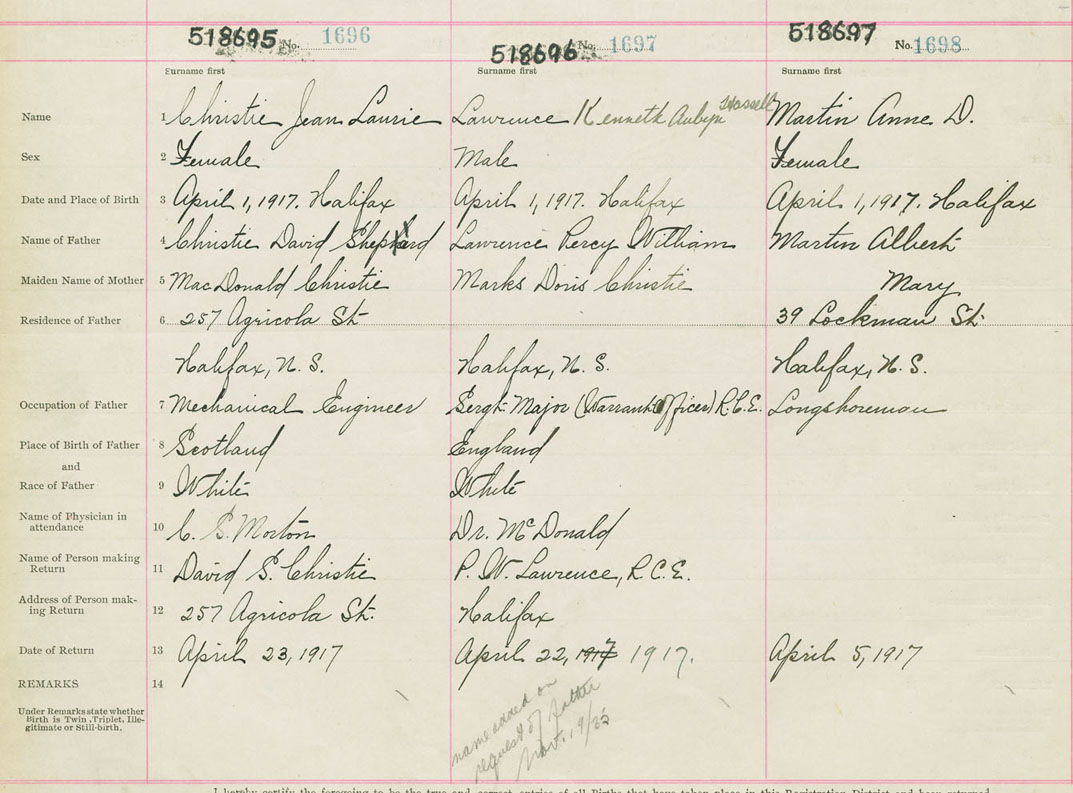 518695 No. 1696 518696 No. 1697 518697 No. 1698
Surname first Surname first Surname first
Name 1 Christie Jean Laurie Lawrence Kenneth Aubyn Hassell Martin Anne D.
Sex 2 Female Male Female
Date and Place of Birth 3 April 1, 1917. Halifax April 1, 1917. Halifax April 1, 1917. Halifax
Name of Father 4 Christie David Shepherd Lawrence Percy William Martin Albert
Maiden Name of Mother 5 MacDonald Christie Marks Doris Christie Mary
Residence of Father 6 257 Agricola St. 39 Lockman St.
Halifax, N. S. Halifax, N. S. Halifax, N. S.
Occupation of Father 7 Mechanical Engineer Sergt-Major (Warrant Officer) R.C.E. Longshoreman
Place of Birth of Father 8 Scotland England
and
Race of Father 9 White White
Name of Physician in
attendance 10 C. S. Morton Dr. McDonald
Name of Person making
Return 11 David S. Christie P. W. Lawrence, R.C.E.
Address of Person mak-
ing Return 12 257 Agricola St. Halifax
Date of Return 13 April 23, 1917 April 22, 1917 1917. April 5, 1917
REMARKS 14
Under Remarks state whether
Birth is Twin, Triplet, Ille-
gitimate or Still-birth.
name added on
request of father
Nov. 19/35
I hereby certify the foregoing to be the true and correct entries of all Births that have taken place in this Registration District and been returned